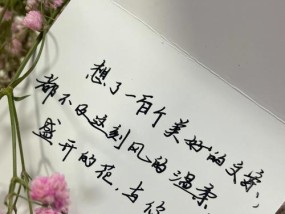 想了一百个美好的文字，
都不及这刻风的温柔，
盛开的花，与你